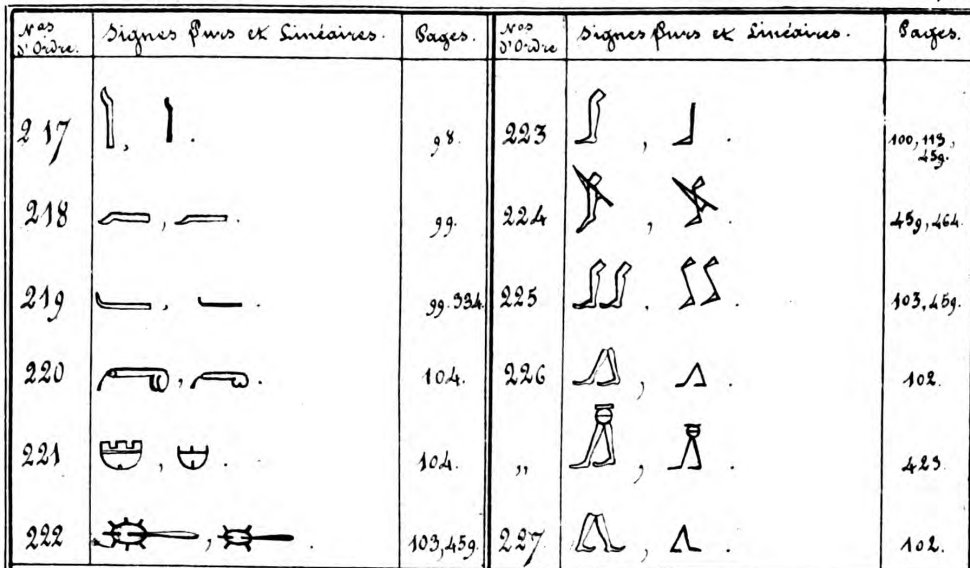 Nos d'Ordre. Signes Purs et Linéaires. Pages. Nos d'Ordre Signes Purs et Linéaires. Pages.
217 , . 98. 223 , . 100, 113, 459.
218 , . 99. 224 , . 459, 464.
219 , . 99. 334. 225 , . 103, 459.
220 , . 104. 226 , . 102.
221 , . 104. ,, , . 423.
222 , . 103, 459. 227 , . 102.